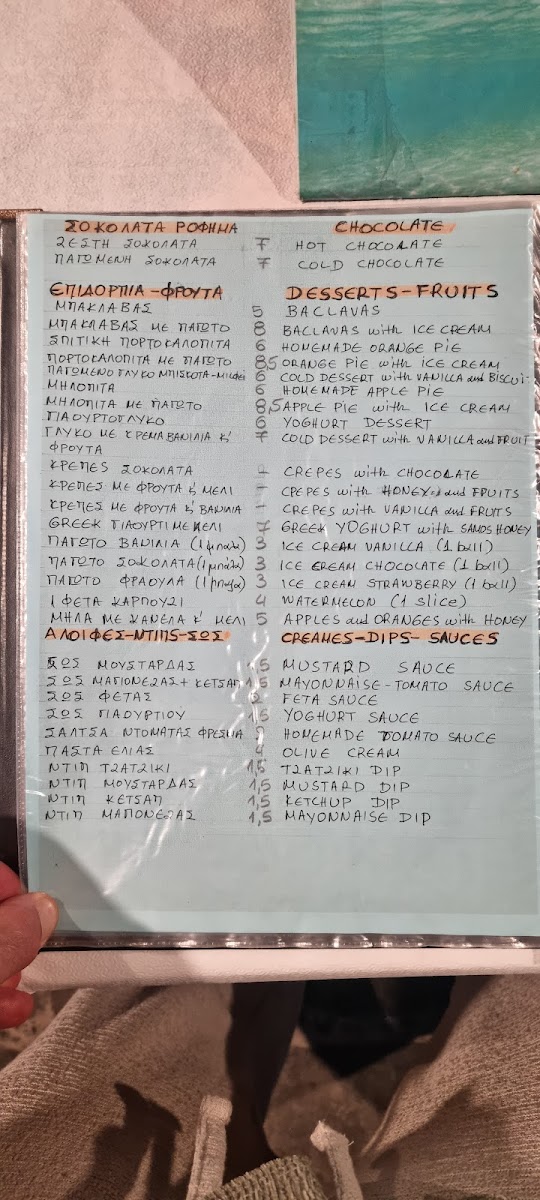 ΣΟΚΟΛΑΤΑ ΡΟΦΗΜΑ CHOCOLATE
ΖΕΣΤΗ ΣΟΚΟΛΑΤΑ 7 HOT CHOCOLATE
ΠΑΓΩΜΕΝΗ ΣΟΚΟΛΑΤΑ 7 COLD CHOCOLATE
ΕΠΙΔΟΡΠΙΑ-ΦΡΟΥΤΑ DESSERTS-FRUITS
ΜΠΑΚΛΑΒΑΣ 5 BACLAVAS
ΜΠΑΚΛΑΒΑΣ ΜΕ ΠΑΓΩΤΟ 8 BACLAVAS with ICE CREAM
ΣΠΙΤΙΚΗ ΠΟΡΤΟΚΑΛΟΠΙΤΑ 6 HOMEMADE ORANGE PIE
ΠΟΡΤΟΚΑΛΟΠΙΤΑ ΜΕ ΠΑΓΩΤΟ 8,5 ORANGE PIE with ICE CREAM
ΠΑΓΩΜΕΝΟ ΓΛΥΚΟ ΜΠΙΣΚΟΤΑ- 6 COLD DESSERT with VANILLA and BISCUI-
ΜΗΛΟΠΙΤΑ 6 HOMEMADE APPLE PIE
ΜΗΛΟΠΙΤΑ ΜΕ ΠΑΓΩΤΟ 8,5 APPLE PIE with ICE CREAM
ΓΙΑΟΥΡΤΟΓΛΥΚΟ 6 YOGHURT DESSERT
ΓΛΥΚΟ ΜΕ ΚΡΕΜΑ ΒΑΝΙΛΙΑ Κ' 7 COLD DESSERT with VANILLA and FRUIT
ΦΡΟΥΤΑ
ΚΡΕΠΕΣ ΣΟΚΟΛΑΤΑ CREPES with CHOCOLATE
ΚΡΕΠΕΣ ΜΕ ΦΡΟΥΤΑ Κ' ΜΕΛΙ CREPES with HONEY and FRUITS
ΚΡΕΠΕΣ ΜΕ ΦΡΟΥΤΑ Κ' ΒΑΝΙΛΙΑ CREPES with VANILLA and FRUITS
GREEK ΓΙΑΟΥΡΤΙ ΜΕ ΜΕΛΙ 7 GREEK YOGHURT with SAMOS HONEY
ΠΑΓΩΤΟ ΒΑΝΙΛΙΑ (1 μπάλα) 3 ICE CREAM VANILLA (1 ball)
ΠΑΓΩΤΟ ΣΟΚΟΛΑΤΑ (1 μπάλα) 3 ICE CREAM CHOCOLATE (1 ball)
ΠΑΓΩΤΟ ΦΡΑΟΥΛΑ (1 μπάλα) 3 ICE CREAM STRAWBERRY (1 ball)
1 ΦΕΤΑ ΚΑΡΠΟΥΖΙ 4 WATERMELON (1 SLICE)
ΜΗΛΑ ΜΕ ΚΑΝΕΛΑ Κ' ΜΕΛΙ 5 APPLES and ORANGES with HONEY
ΑΛΟΙΦΕΣ-ΝΤΙΠΣ-ΣΩΣ CREAMES-DIPS-SAUCES
ΣΩΣ ΜΟΥΣΤΑΡΔΑΣ 1,5 MUSTARD SAUCE
ΣΩΣ ΜΑΓΙΟΝΕΖΑΣ+ ΚΕΤΣΑΠ 1,5 MAYONNAISE-TOMATO SAUCE
ΣΩΣ ΦΕΤΑΣ 2 FETA SAUCE
ΣΩΣ ΓΙΑΟΥΡΤΙΟΥ 1,5 YOGHURT SAUCE
ΣΑΛΤΣΑ ΝΤΟΜΑΤΑΣ ΦΡΕΣΚΙΑ HOMEMADE TOMATO SAUCE
ΠΑΣΤΑ ΕΛΙΑΣ 4 OLIVE CREAM
ΝΤΙΠ ΤΖΑΤΖΙΚΙ 1,5 TZATZIKI DIP
ΝΤΙΠ ΜΟΥΣΤΑΡΔΑΣ 1,5 MUSTARD DIP
ΝΤΙΠ ΚΕΤΣΑΠ 1,5 KETCHUP DIP
ΝΤΙΠ ΜΑΓΙΟΝΕΖΑΣ 1,5 MAYONNAISE DIP